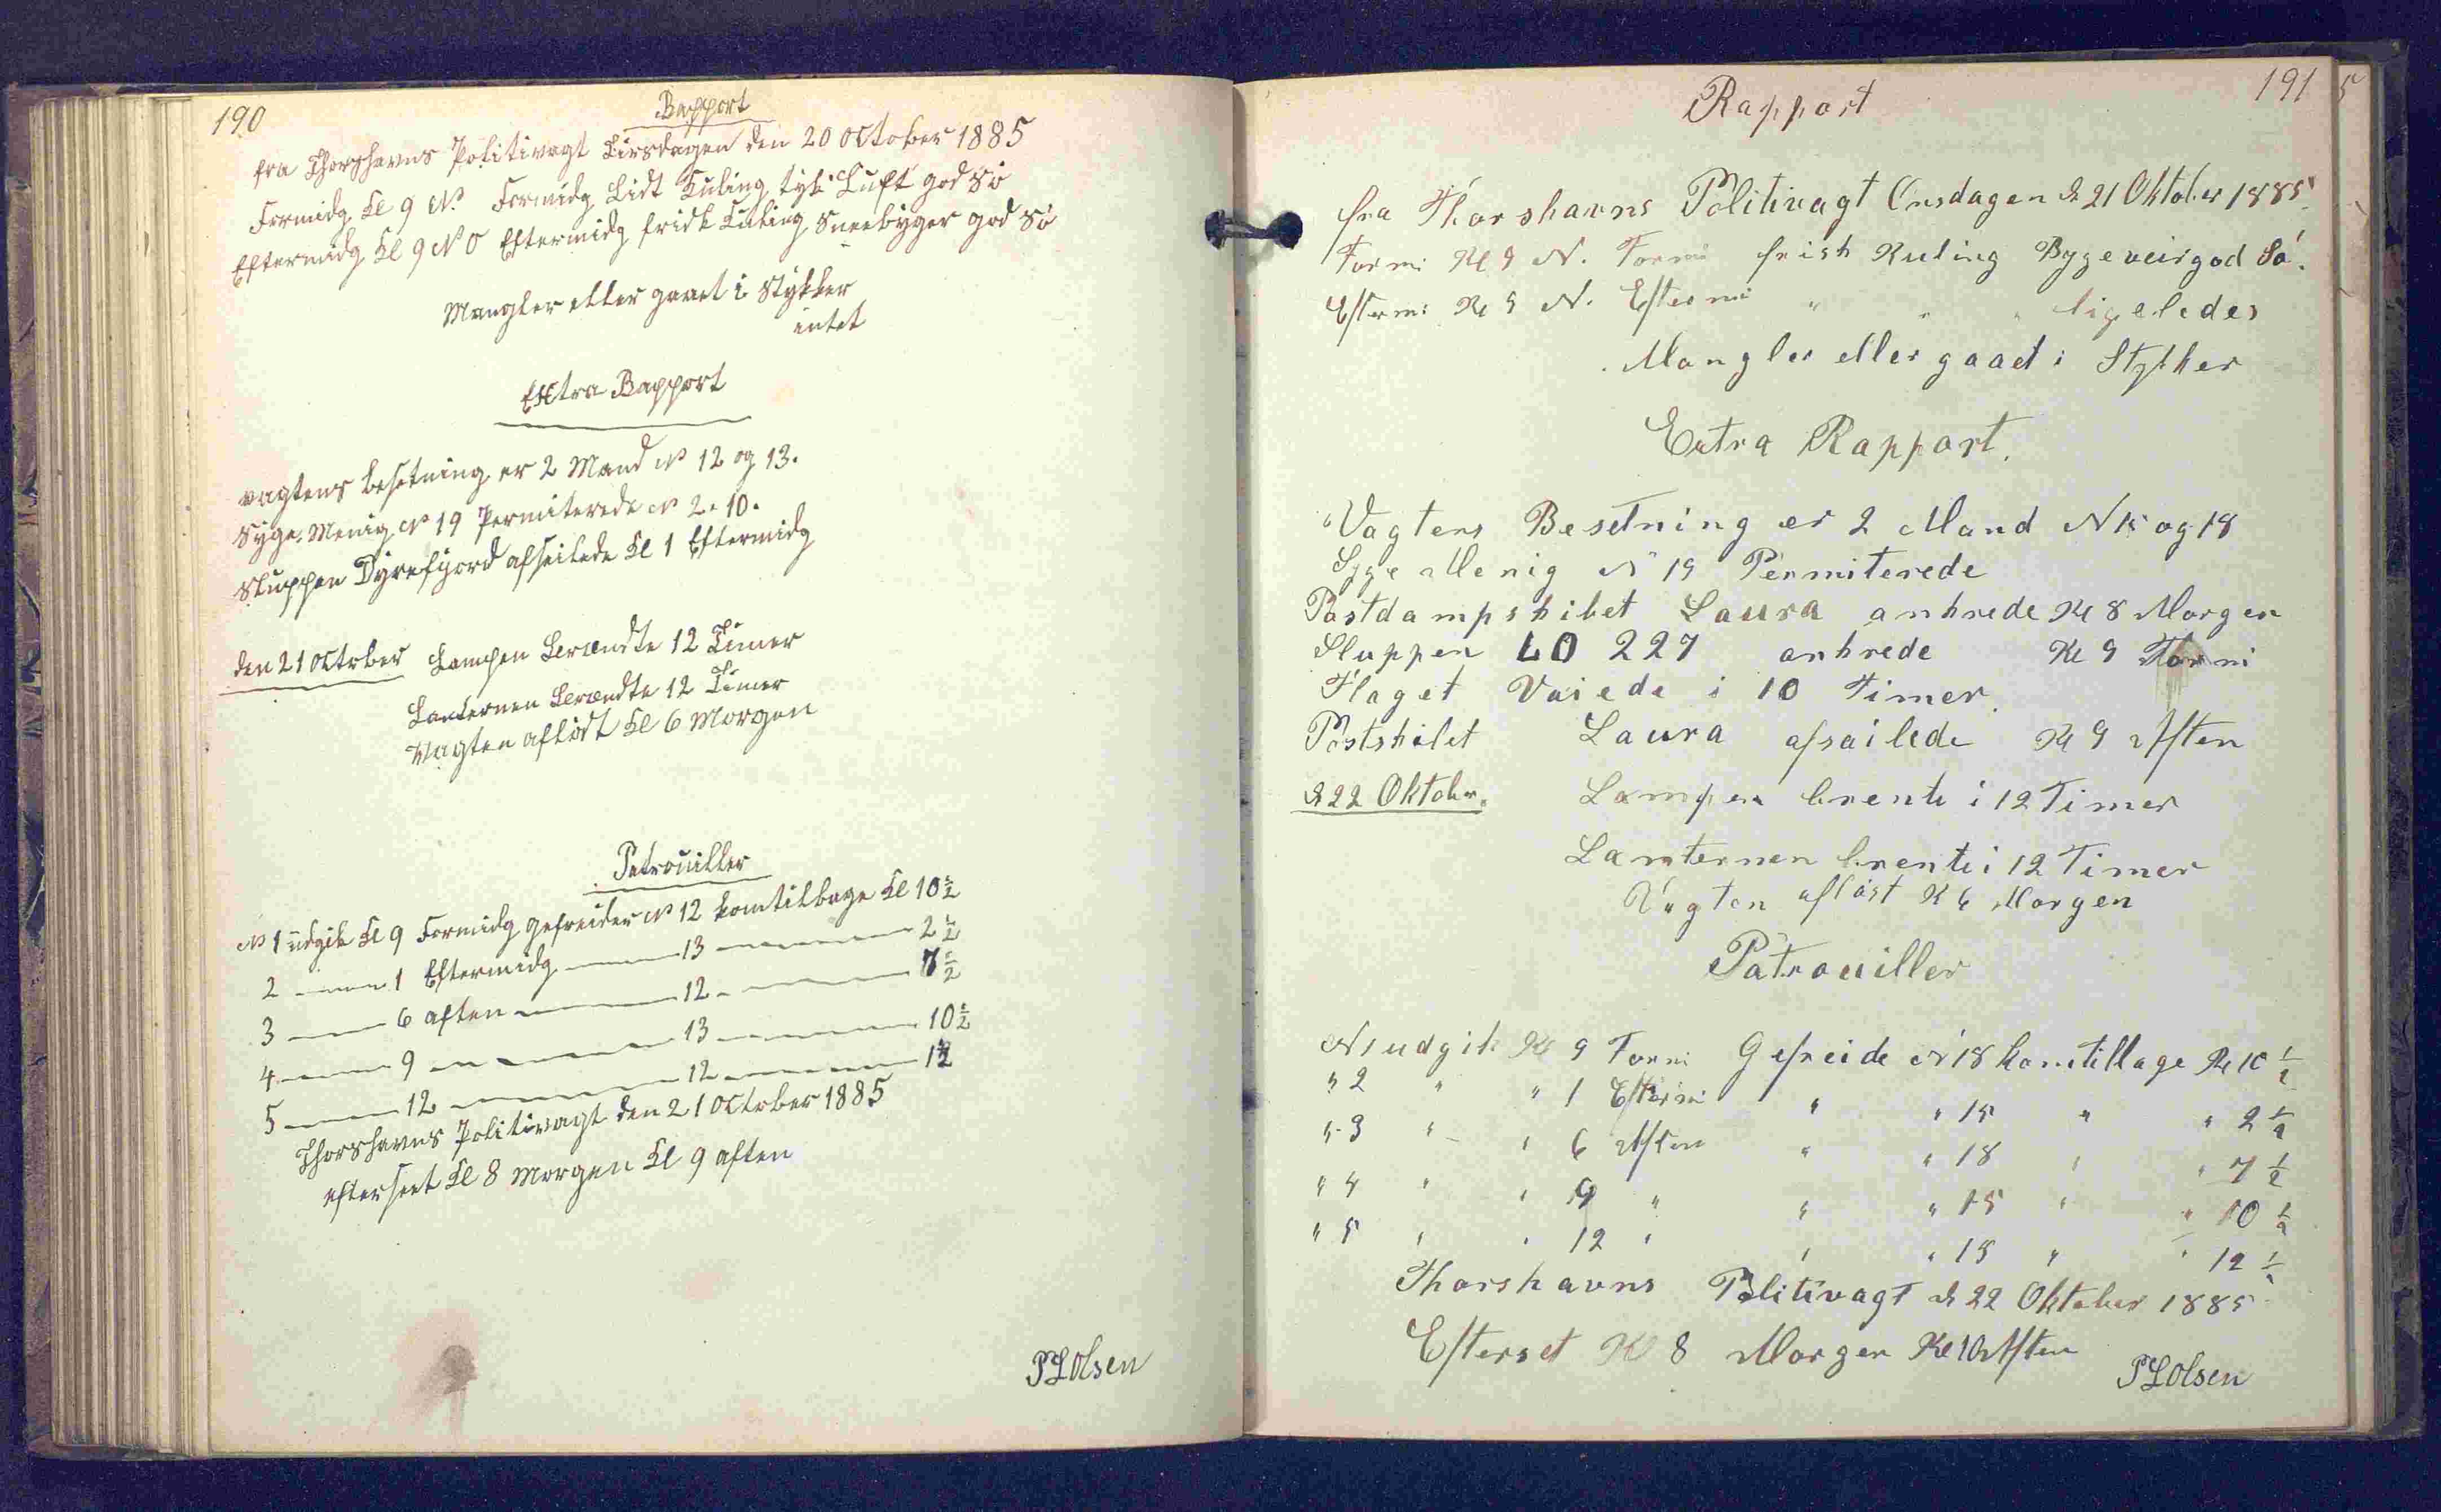 190
Rapport
fra Thorshavns Politivagt Tirsdagen den 20 October 1885
Formidg Kl 9 N. Formidg Lidt Kuling tyk Luft god Sö
Eftermidg Kl 9 N O Eftermidg frisk Kuling Sneebyger god Sö
Mangler eller gaaet i Stykker
intet
Extra Rapport
vagtens besetning er 2 Mand No 12 og 13.
Syge. Menig No 19 Permiterede No 2. 10.
Sluppen Dyrefjord afseilede Kl 1 Eftermidg
den 21 October Lampen Brændte 12 Timer
Lanternen Brændte 12 Timer
Vagten aflöst Kl 6 Morgen
Patrouiller
No 1 udgik Kl 9 Formidg gefreider No 12 komtilbage Kl 10 1/2
2 — 1 Eftermidg — 13 — 2 1/2
3 — 6 aften — 12 — 7 1/2
4 — 9 — 13 — 10 1/2
5 — 12 — 12 — 1 1/2
Thorshavns Politivagt den 21 October 1885
efterseet Kl 8 Morgen Kl 9 aften
P L Olsen
191
Rapport
fra Thorshavns Politivagt Onsdagen d 21 Oktober 1885
Formi Kl 9 N. Formi frisk Kuling Bygeveir god Sö.
Eftermi Kl 9 N. Eftermi " " " ligeledes
Mangler eller gaaet i Stykker
Extra Rapport.
Vagtens Besetning er 2 Mand N 15 og 18
Syge Menig N 19 Permiterede
Postdampskibet Laura ankrede Kl 8 Morgen
Sluppen LO 227 ankrede Kl 9 Formi
Flaget Vaiede i 10 Timer.
Postskibet Laura afsailede Kl 9 Aften
d 22 Oktobr. Lampen brente i 12 Timer
Lanternen brente i 12 Timer
Vagten aflöst Kl 6 Morgen
Patrouiller
N 1 udgik Kl 9 Formi Gefreide N 18 komtilbage Kl 10 1/2
" 2 " " 1 Eftermi " " 15 " " 2 1/2
" 3 " " 6 Aften " " 18 " " 7 1/2
" 4 " " 9 " " " 15 " " 10 1/2
" 5 " " 12 " " " 18 " " 12 1/2
Thorshavns Politivagt d 22 Oktober 1885
Efterset Kl 8 Morgen Kl 10 Aften
P L Olsen